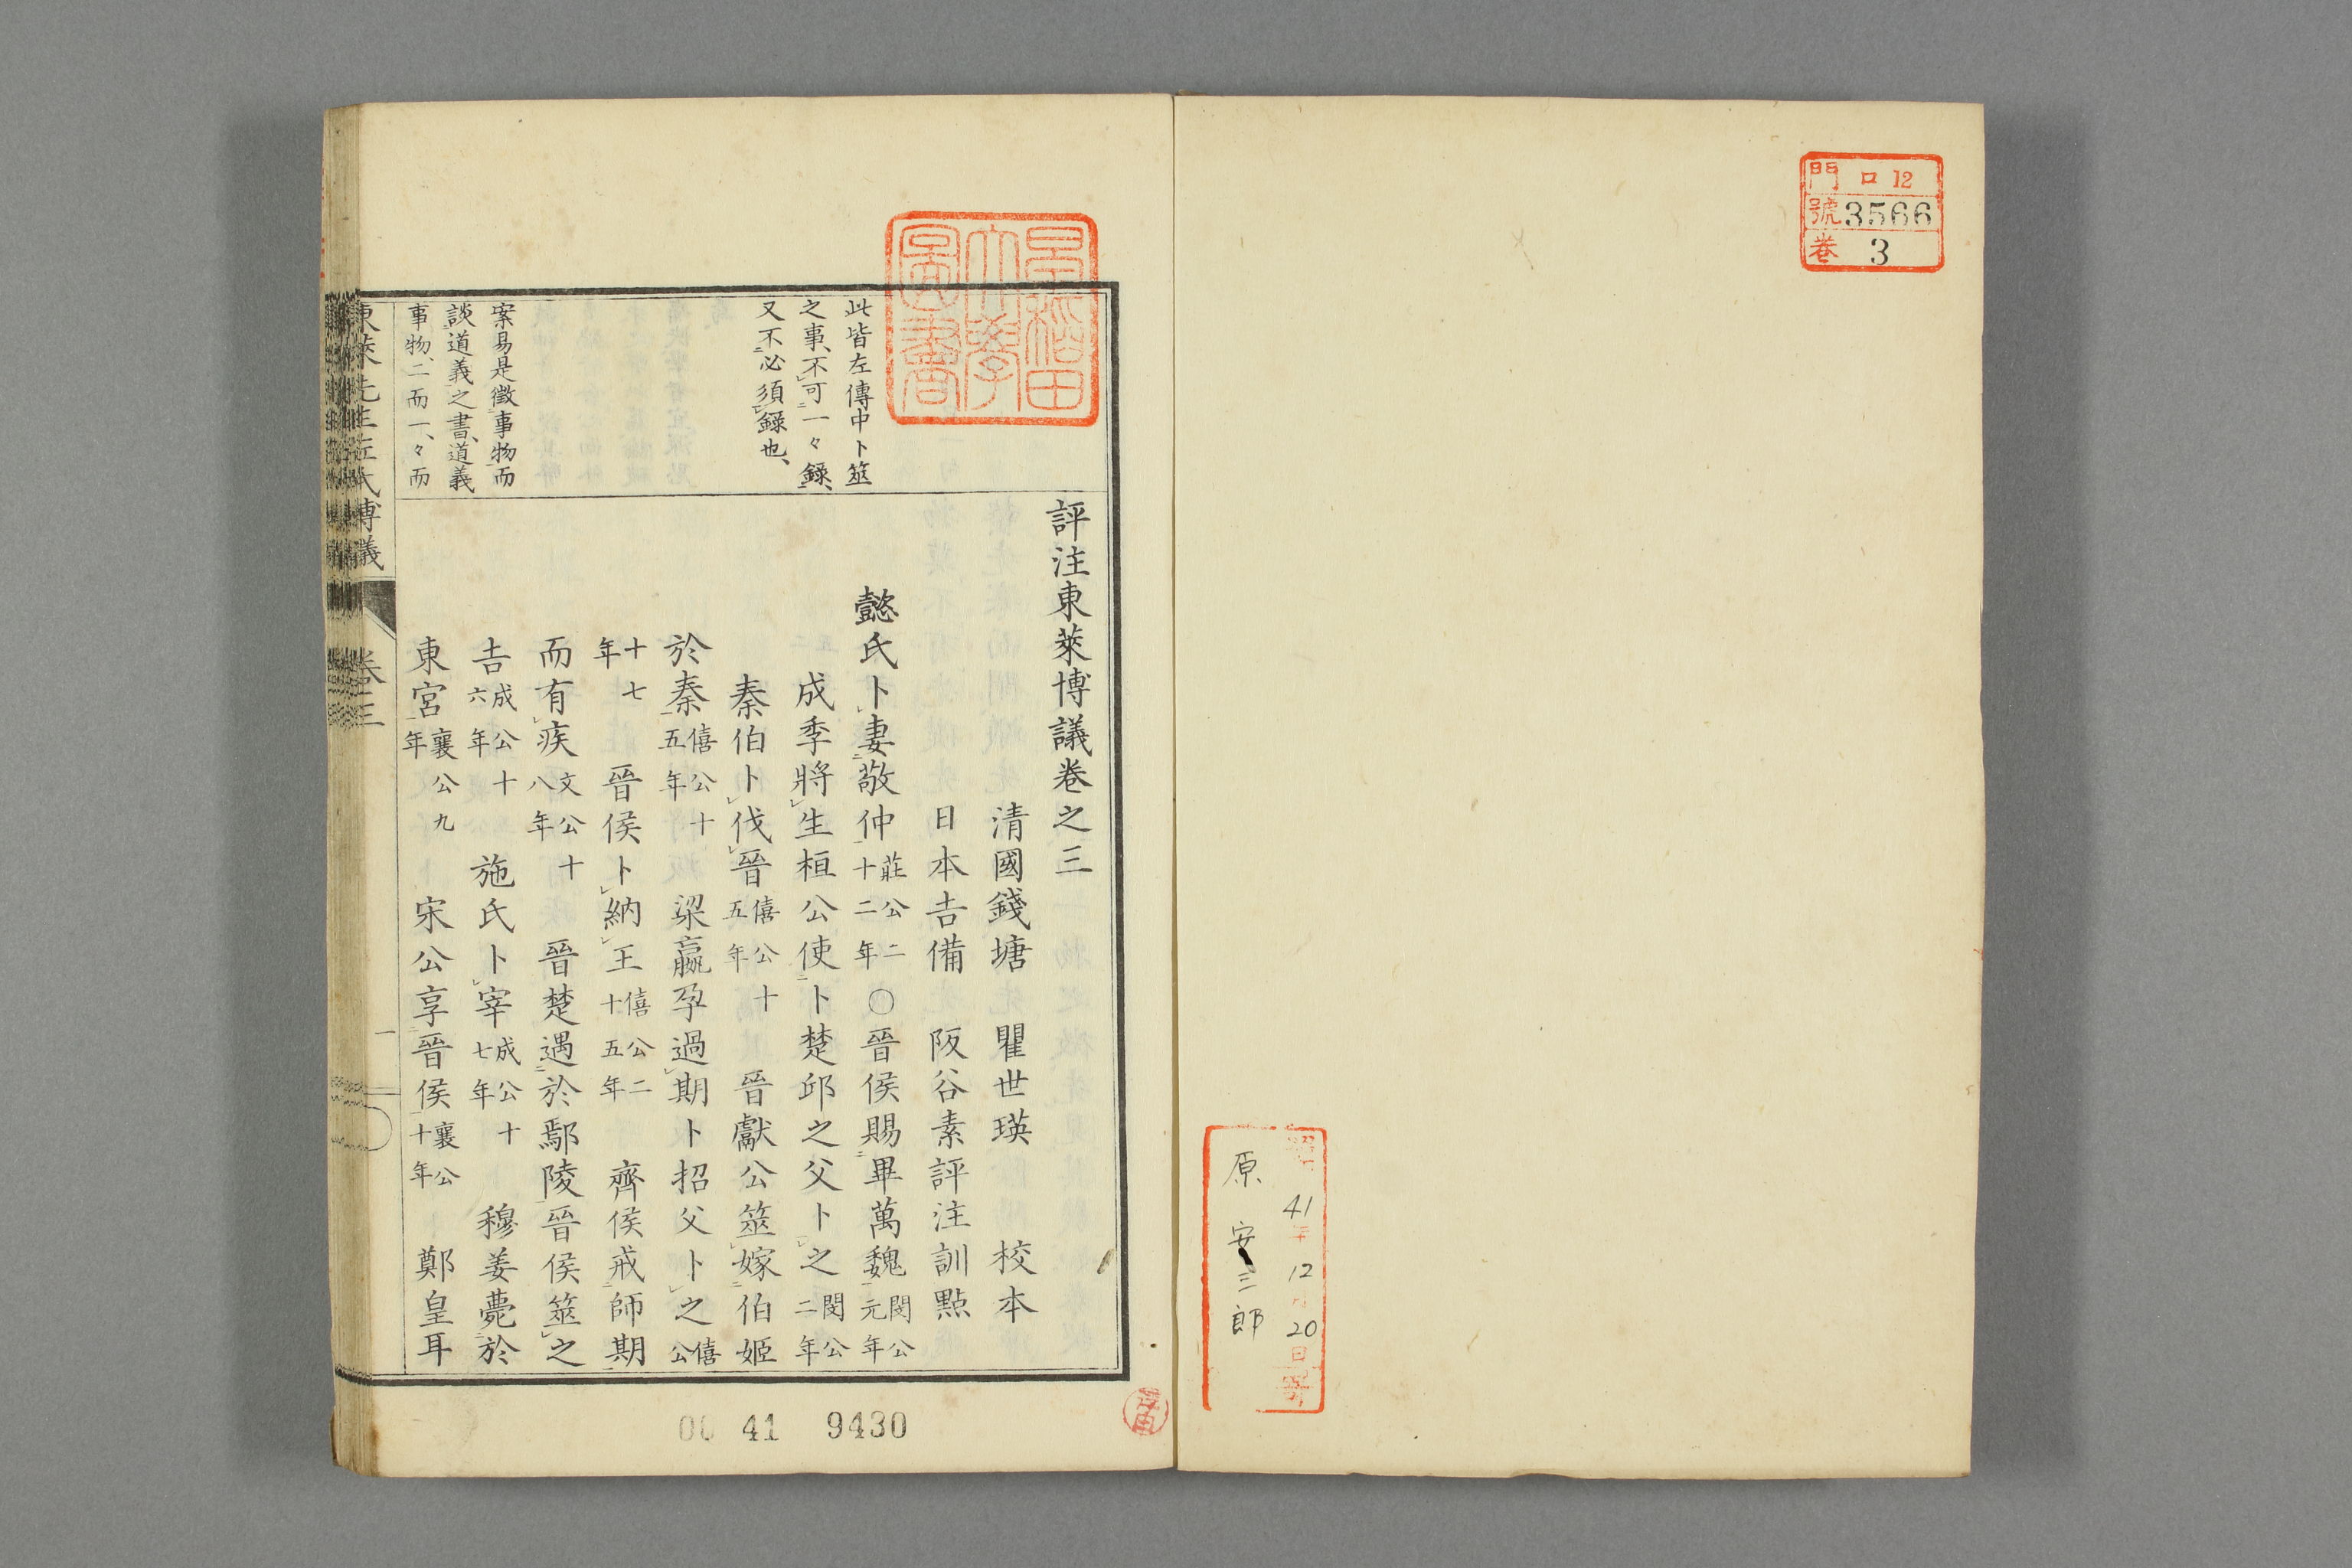 門 ロ12
號 3566
卷 3
41
12
20日
原安三郎
早稲田
大學
圖書
此皆左傳中卜筮
之事、不可一々錄、
又不必須錄也、
案易是徵事物而
談道義之書、道義
事物、二而一、々而
評注東萊博議卷之三
清國錢塘 瞿世瑛 校本
日本吉備 阪谷素評注訓點
懿氏卜妻敬仲莊公二十二年〇晉侯賜畢萬魏閔公元年
成季將生桓公使卜楚邱之父卜之閔公二年
秦伯卜伐晉僖公十五年 晉獻公筮嫁伯姬
於秦僖公十五年 梁嬴孕過期卜招父卜之僖公
十七年 晉侯卜納王僖公二十五年 齊侯戒師期
而有疾文公十八年 晉楚遇於鄢陵晉侯筮之
吉成公十六年 施氏卜宰成公十七年 穆姜薨於
東宮襄公九年 宋公享晉侯襄公十年 鄭皇耳
東萊先生左氏博議 卷三
一
41 9430